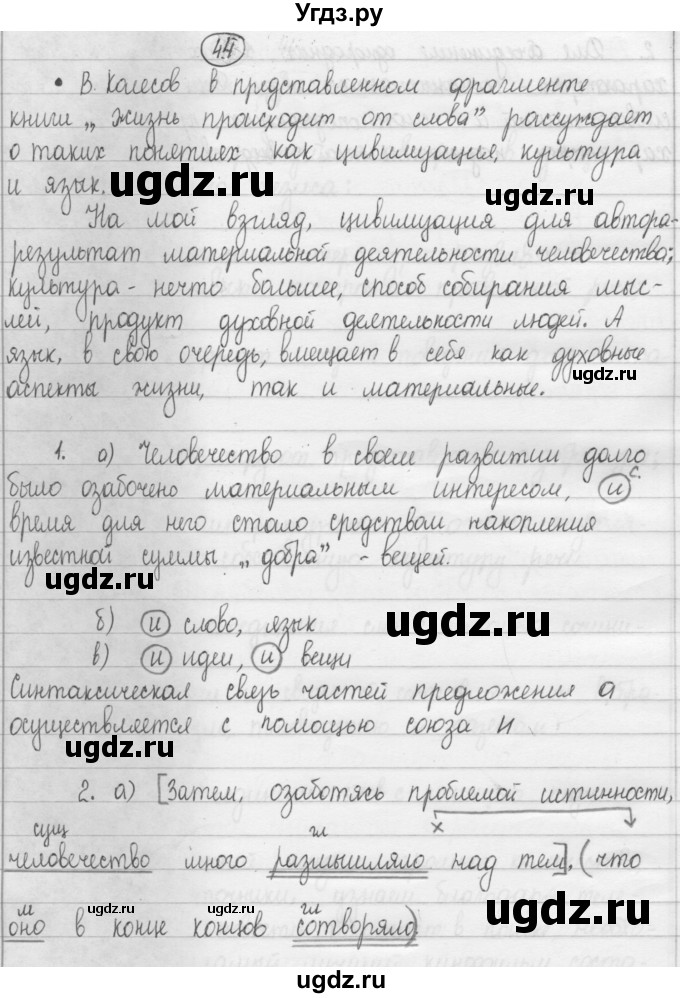 Угдз.ру
44
• В. Колесов в представленном фрагменте
книги „ жизнь происходит от слова" рассуждает
о таких понятиях как цивилизация, культура
и язык.
ugdz.ru ugdz.ru
На мой взгляд, цивилизация для автора-
результат материальной деятельности человечества;
культура - нечто большее, способ собирания мыс-
ugdz.ru
лей, продукт духовной деятельности людей. А
язык, в свою очередь, вмещает в себе как духовные
ugdz.ru ugdz.ru
аспекты жизни, так и материальные.
1. а) Человечество в своем развитии долго
было озабочено материальным интересом, и с.
время для него стало средством накопления
известной суммы „ добра" - вещей.
ugdz.ru ugdz.ru
б) и слово, язык
ugdz.ru
в) и идеи, и вещи
Синтаксическая связь частей предложения а
осуществляется с помощью союза и
ugdz.ru ugdz.ru
2. а) [Затем, озаботясь проблемой истинности,
сущ гл х
человечество много размышляло над тем], (что
м гл
оно в конце концов сотворяло)
ugdz.ru ugdz.ru ugdz.ru
ugdz.ru